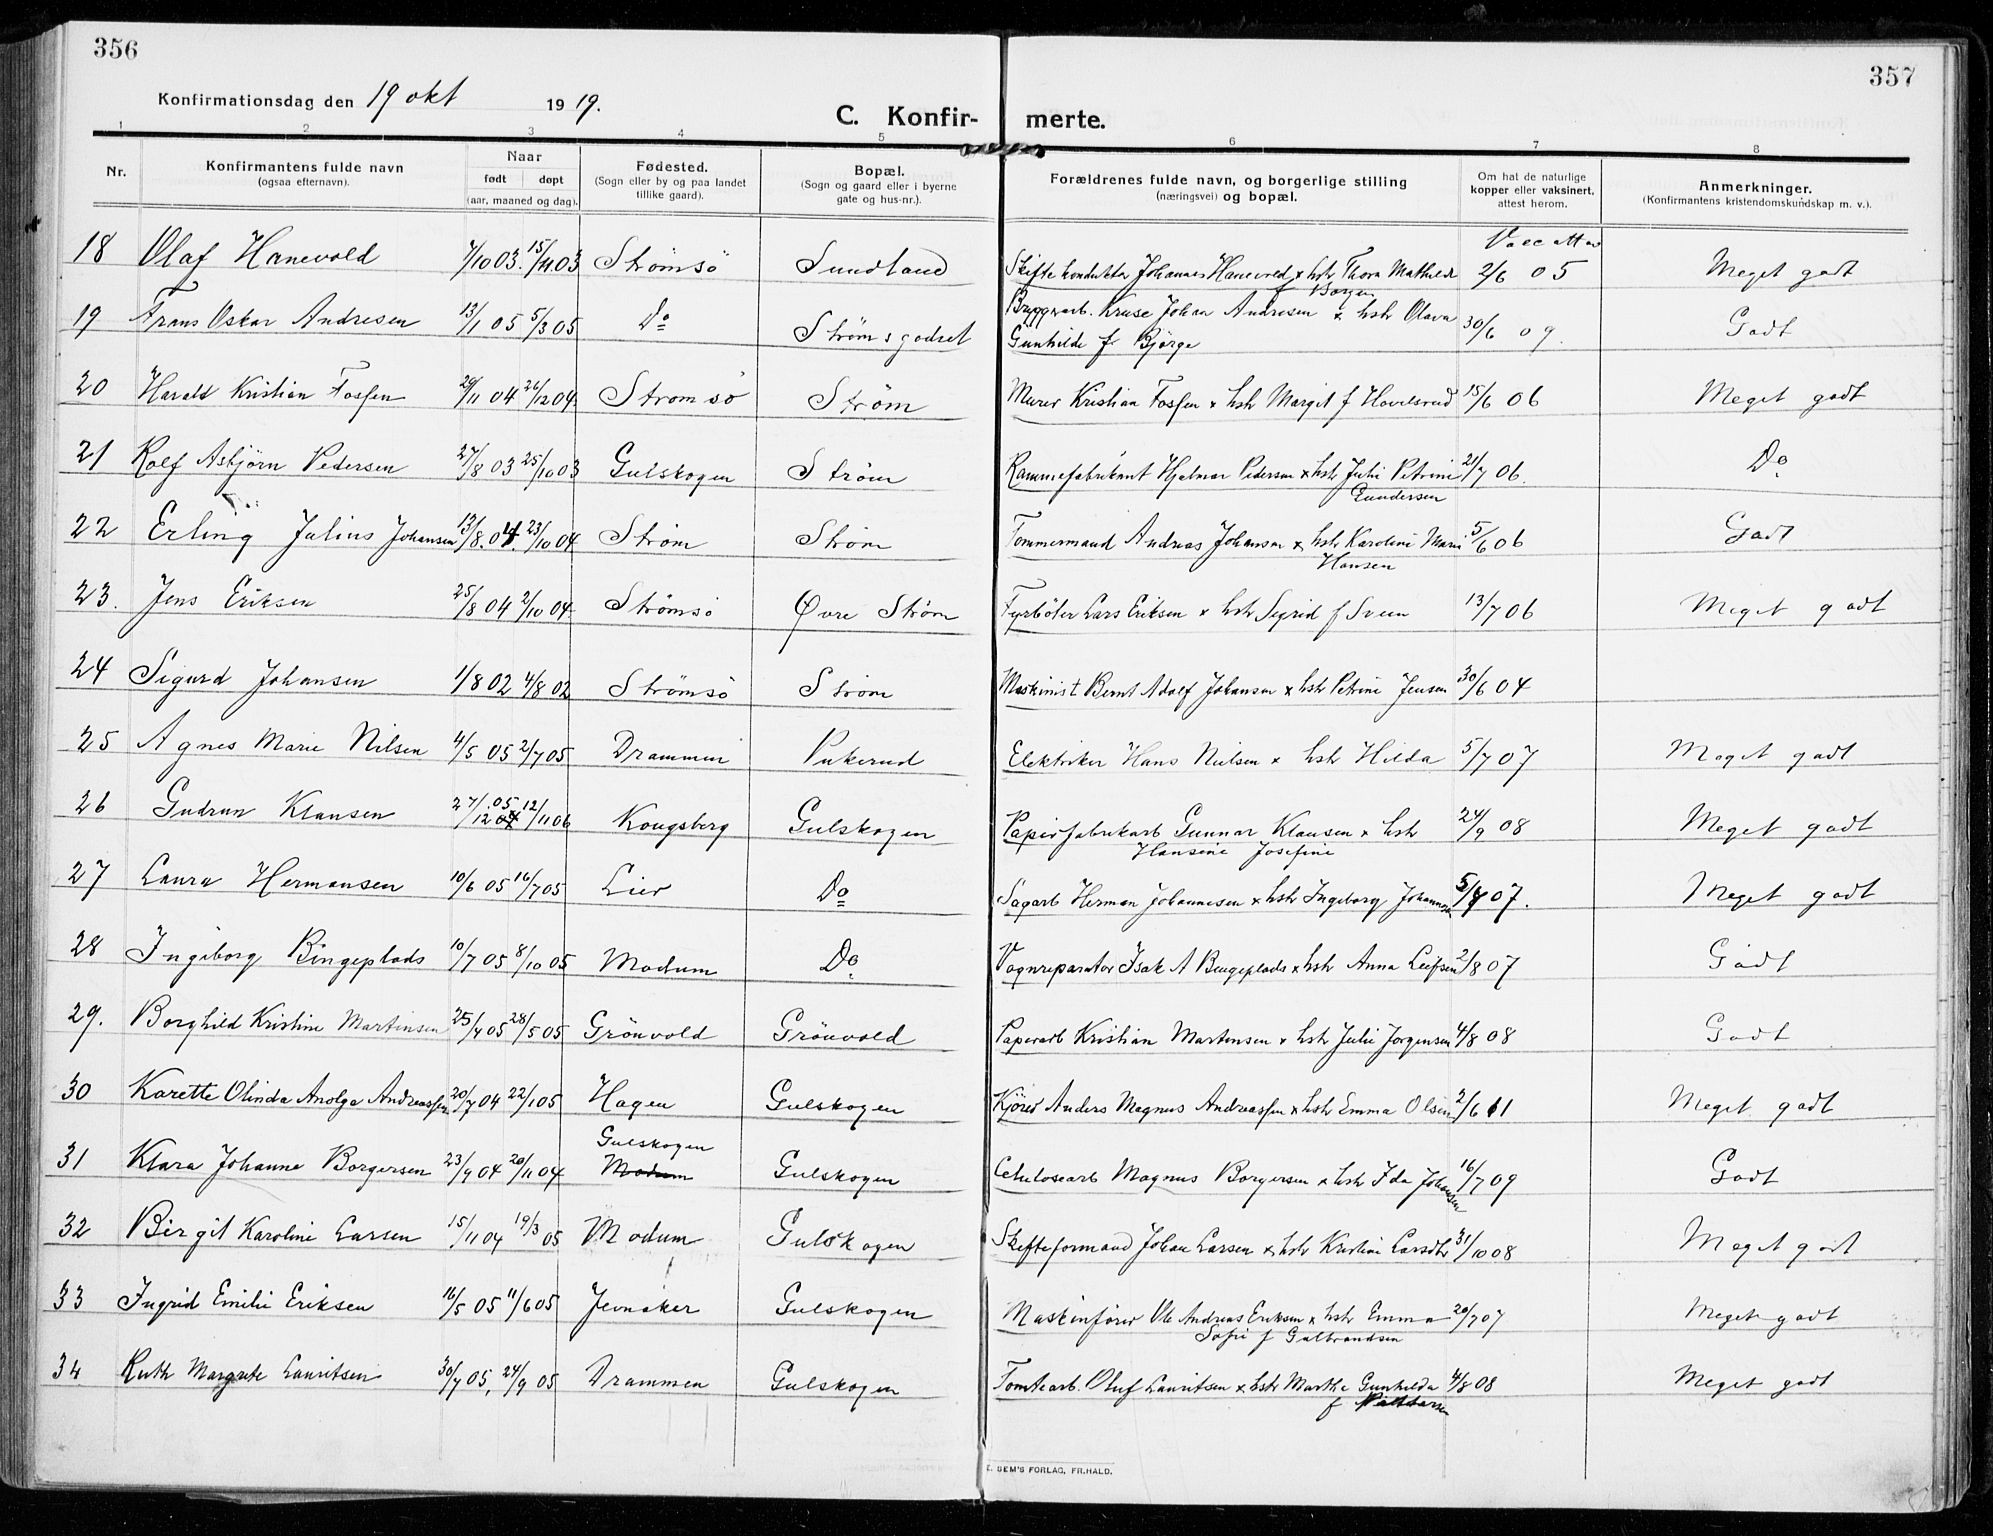 356
357
Konfirmationsdag den 19 okt 1919.
C. Konfir- merte.
1 2 3 4 5 6 7 8
Nr. Konfirmantens fulde navn (ogsaa efternavn). Naar født døpt (aar, maaned og dag). Fødested. (Sogn eller by og paa landet tillike gaard). Bopæl. (Sogn og gaard eller i byerne gate og hus-nr.). Forældrenes fulde navn, og borgerlige stilling (næringsvei) og bopæl. Om hat de naturlige kopper eller vaksinert, attest herom. Anmerkninger. (Konfirmantens kristendomskundskap m. v.).
Vacc att av
18 Olaf Hanevold 7/10 03. 15/11 03 Strømsö Sundland Skiftekonduktør Johannes Hanevold x hstr Thora Mathilde 2/6 05 Meget godt
f Borgen
19 Frans Oskar Andresen 13/1 05 5/3 05 Do Strømsgodset Bryggearb. Kruse Johan Andresen x hstr Olava 30/6 09. Godt
Gunhilde f Bjørge
20 Harald Kristian Fosfen 29/11 04 26/12 04. Stromsö Strøm Murer Kristian Fosfen x hstr Margit f Hovelsrud 15/6 06 Meget godt
21 Rolf Asbjörn Pedersen 27/8 03 25/10 03 Gulskogen Strøm Rammefabrikant Hjalmar Pedersen x hstr Julie Petrine 21/7 06. Do
Gundersen
22 Erling Julius Johansen 13/8. 04. 23/10 04 Strøm Strøm Tømmermand Andreas Johansen x hstr Karoline Marie 5/6 06 Godt
Hansen
23. Jens Eriksen 25/8 04 2/10 04. Strømsö Øvre Strøm Fyrböter Lars Eriksen x hstr Sigrid f Sveen 13/7 06 Meget godt
24 Sigurd Johansen 1/8 02 4/8 02 Strømsö Strøm Maskinist Bernt Adolf Johansen x hstr Petrine Jensen 30/6 04
25 Agnes Marie Nilsen 4/5 05 2/7 05 Drammen Pukerud Elektriker Hans Nielsen x hstr Hilda 5/7 07 Meget godt
26 Gudrun Klausen 27/12 05 04 12/11 06 Kongsberg Gulskogen Papirfabrikarb Gunnar Klausen x hstr 24/9 08 Meget godt
Hansine Josefine
27 Laura Hermansen 10/6 05 16/7 05 Lier Do Sagarb Herman Johannesen x hstr Ingeborg Johannesen 5/7 07. Meget godt
28 Ingeborg Bingeplads 10/7 05 8/10 05 Modum Do Vognreparatør Isak A Bingeplads x hstr Anna Leifsen 2/8 07 Godt
29. Borghild Kristine Martinsen 25/4 05 28/5 05 Grönvold Grönvold Papirarb Kristian Martinsen x hstr Julie Jörgensen 4/8 08 Godt
30 Karette Olinda Anolga Andreassen 20/7 04 22/1 05 Hagen Gulskogen Kjörer Anders Magnus Andreassen x hstr Emma Olsen 2/6 11 Meget godt
Gulskogen
31 Klara Johanne Borgersen 23/9 04 20/11 04 Modum Gulskogen Celulosearb Magnus Borgersen x hstr Ida Johansen 16/7 09 Godt
32 Birgit Karoline Larsen 15/11 04 19/3 05 Modum Gulskogen Skifteformand Johan Larsen x hstr Kristine Larsdtr 31/10 08 Meget godt
33 Ingrid Emilie Eriksen 16/5 05 11/6 05 Jevnaker Gulskogen Maskinfører Ole Andreas Eriksen x hstr Emma 20/7 07 Meget godt
Sofie f Gulbrandsen
34 Ruth Margrete Lauritsen 30/7 05, 24/9 05 Drammen Gulskogen Tomtearb. Oluf Lauritsen x hstr Marthe Gunhilda 4/8 08 Meget godt
f
E. SEM'S FORLAG, FR.HALD.